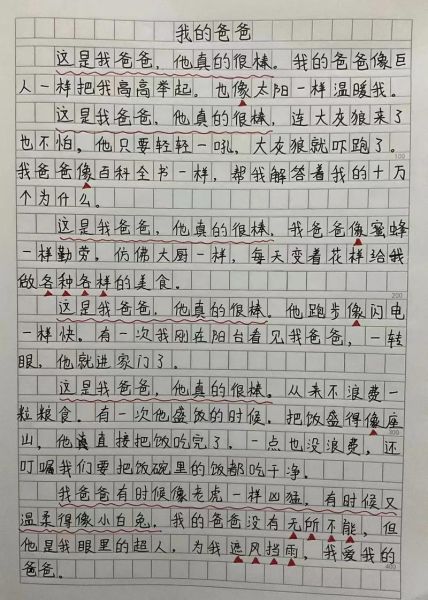 我的爸爸
这是我爸爸，他真的很棒。我的爸爸像巨
人一样把我高高举起，也像太阳一样温暖我。
这是我爸爸，他真的很棒，连大灰狼来了
也不怕，他只要轻轻一吼，大灰狼就吓跑了。
100
我爸爸像百科全书一样，帮我解答着我的十万
个为什么。
这是我爸爸，他真的很棒，我爸爸像蜜蜂
一样勤劳，仿佛大厨一样，每天变着花样给我
做各种各样的美食。
200
这是我爸爸，他真的很棒。他跑步像闪电
一样快。有一次我刚在阳台看见我爸爸，一转
眼，他就进家门了。
这是我爸爸，他真的很棒。从来不浪费一
粒粮食。有一次他盛饭的时候。把饭盛得像座
300
山，他真直接把饭吃完了，一点也没浪费，还
叮嘱我们要把饭碗里的饭都吃干净。
我爸爸有时候像老虎一样凶猛，有时候又
温柔得像小白兔，我的爸爸没有无所不能，但
他是我眼里的超人，为我遮风挡雨，我爱我的
400
爸爸。